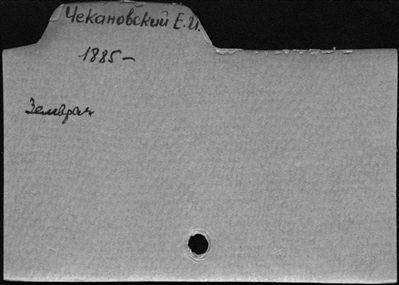 Чекановский Е.И.
1885 –
Земврач